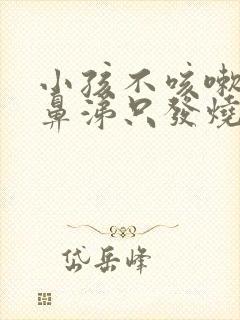 小孩不咳嗽
鼻涕只發燒
岱岳峰